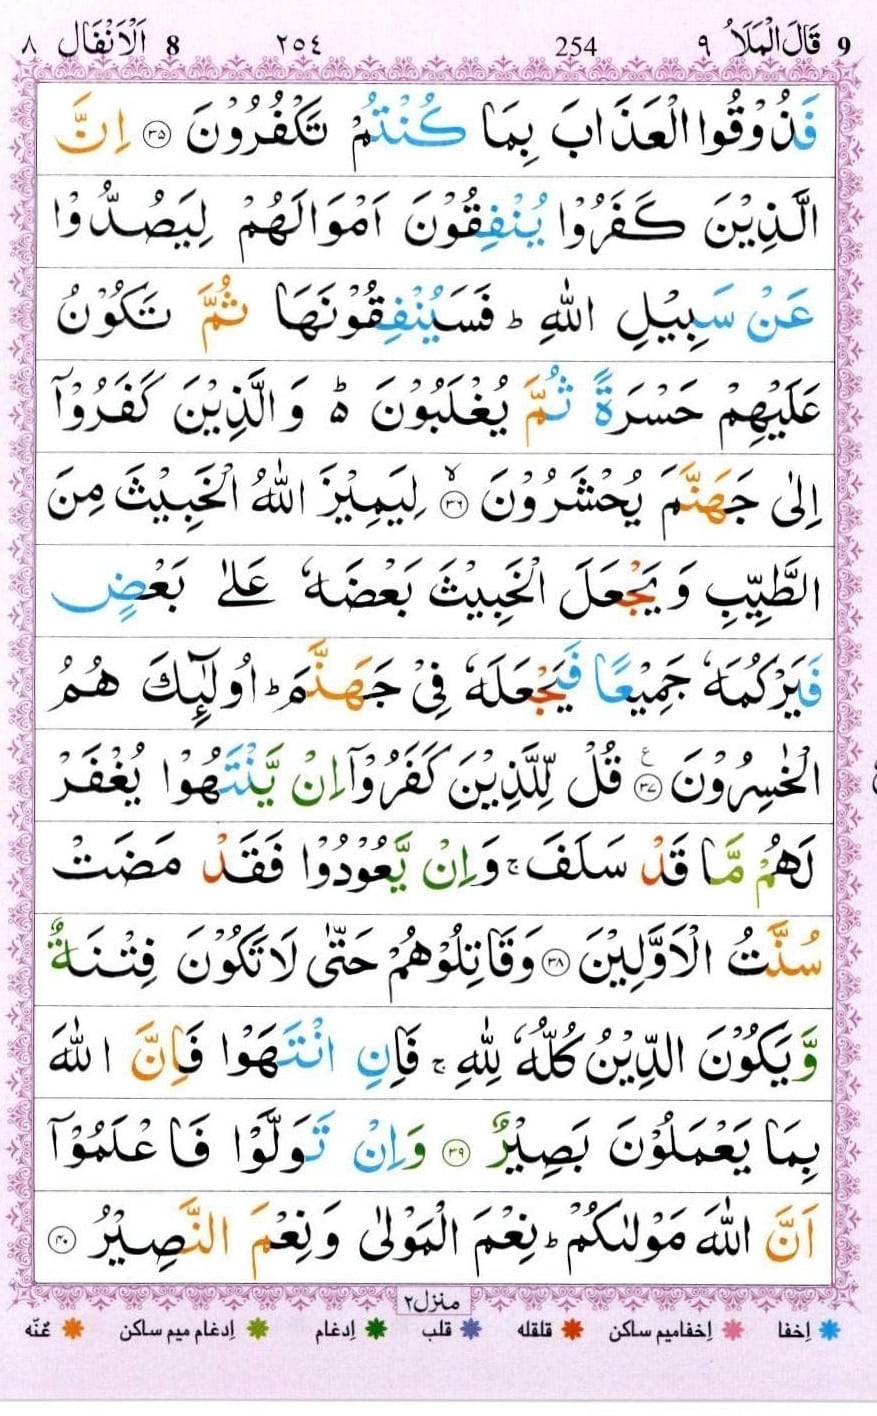 9 قَالَ الْمَلَاُ ٩ 254 ٢٥٤ 8 اَلْاَنْفَال ٨
فَذُوْقُوا الْعَذَابَ بِمَا كُنْتُمْ تَكْفُرُوْنَ ﴿۳۵﴾ اِنَّ
الَّذِيْنَ كَفَرُوْا يُنْفِقُوْنَ اَمْوَالَهُمْ لِيَصُدُّوْا
عَنْ سَبِيْلِ اللّٰهِ ؕ فَسَيُنْفِقُوْنَهَا ثُمَّ تَكُوْنُ
عَلَيْهِمْ حَسْرَةً ثُمَّ يُغْلَبُوْنَ ؕ۬ وَالَّذِيْنَ كَفَرُوْۤا
اِلٰى جَهَنَّمَ يُحْشَرُوْنَ ﴿۳۶﴾ۙ لِيَمِيْزَ اللّٰهُ الْخَبِيْثَ مِنَ
الطَّيِّبِ وَيَجْعَلَ الْخَبِيْثَ بَعْضَهٗ عَلٰى بَعْضٍ
فَيَرْكُمَهٗ جَمِيْعًا فَيَجْعَلَهٗ فِىْ جَهَنَّمَ ؕ اُولٰٓئِكَ هُمُ
الْخٰسِرُوْنَ ﴿۳۷﴾ ع قُلْ لِّلَّذِيْنَ كَفَرُوْۤا اِنْ يَّنْتَهُوْا يُغْفَرْ
لَهُمْ مَّا قَدْ سَلَفَ ۚ وَاِنْ يَّعُوْدُوْا فَقَدْ مَضَتْ
سُنَّتُ الْاَوَّلِيْنَ ﴿۳۸﴾ وَقَاتِلُوْهُمْ حَتّٰى لَا تَكُوْنَ فِتْنَةٌ
وَّيَكُوْنَ الدِّيْنُ كُلُّهٗ لِلّٰهِ ۚ فَاِنِ انْتَهَوْا فَاِنَّ اللّٰهَ
بِمَا يَعْمَلُوْنَ بَصِيْرٌ ﴿۳۹﴾ وَاِنْ تَوَلَّوْا فَاعْلَمُوْۤا
اَنَّ اللّٰهَ مَوْلٰٮكُمْ ؕ نِعْمَ الْمَوْلٰى وَنِعْمَ النَّصِيْرُ ﴿۴۰﴾
منزل۲
اِخفا اِخفامیم ساکن قلقله قلب اِدغام اِدغام میم ساکن غنّه